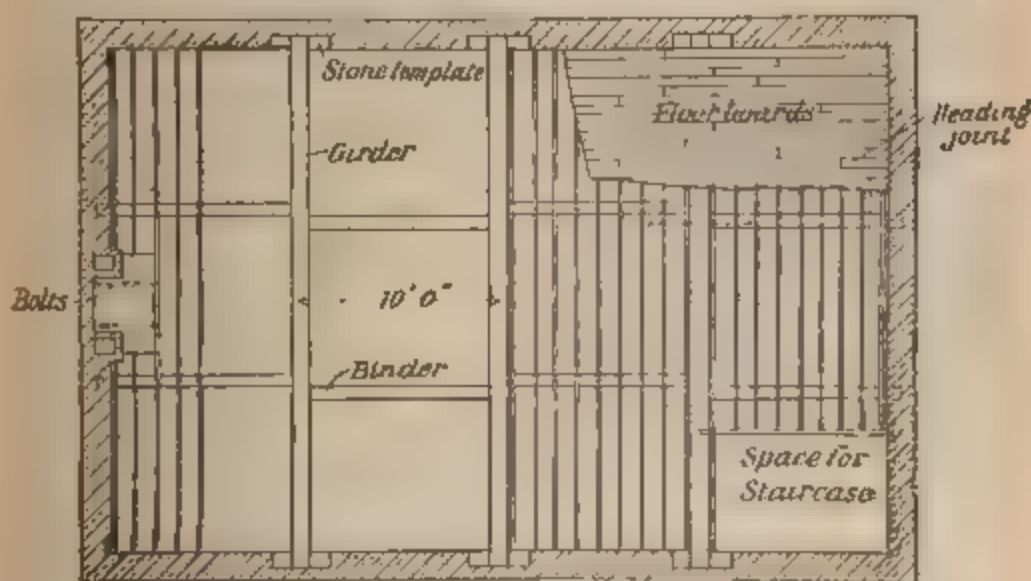 Stone template
Floor boards
Heading
joint
Girder
Bolts
10' 0"
Binder
Space for
Staircase